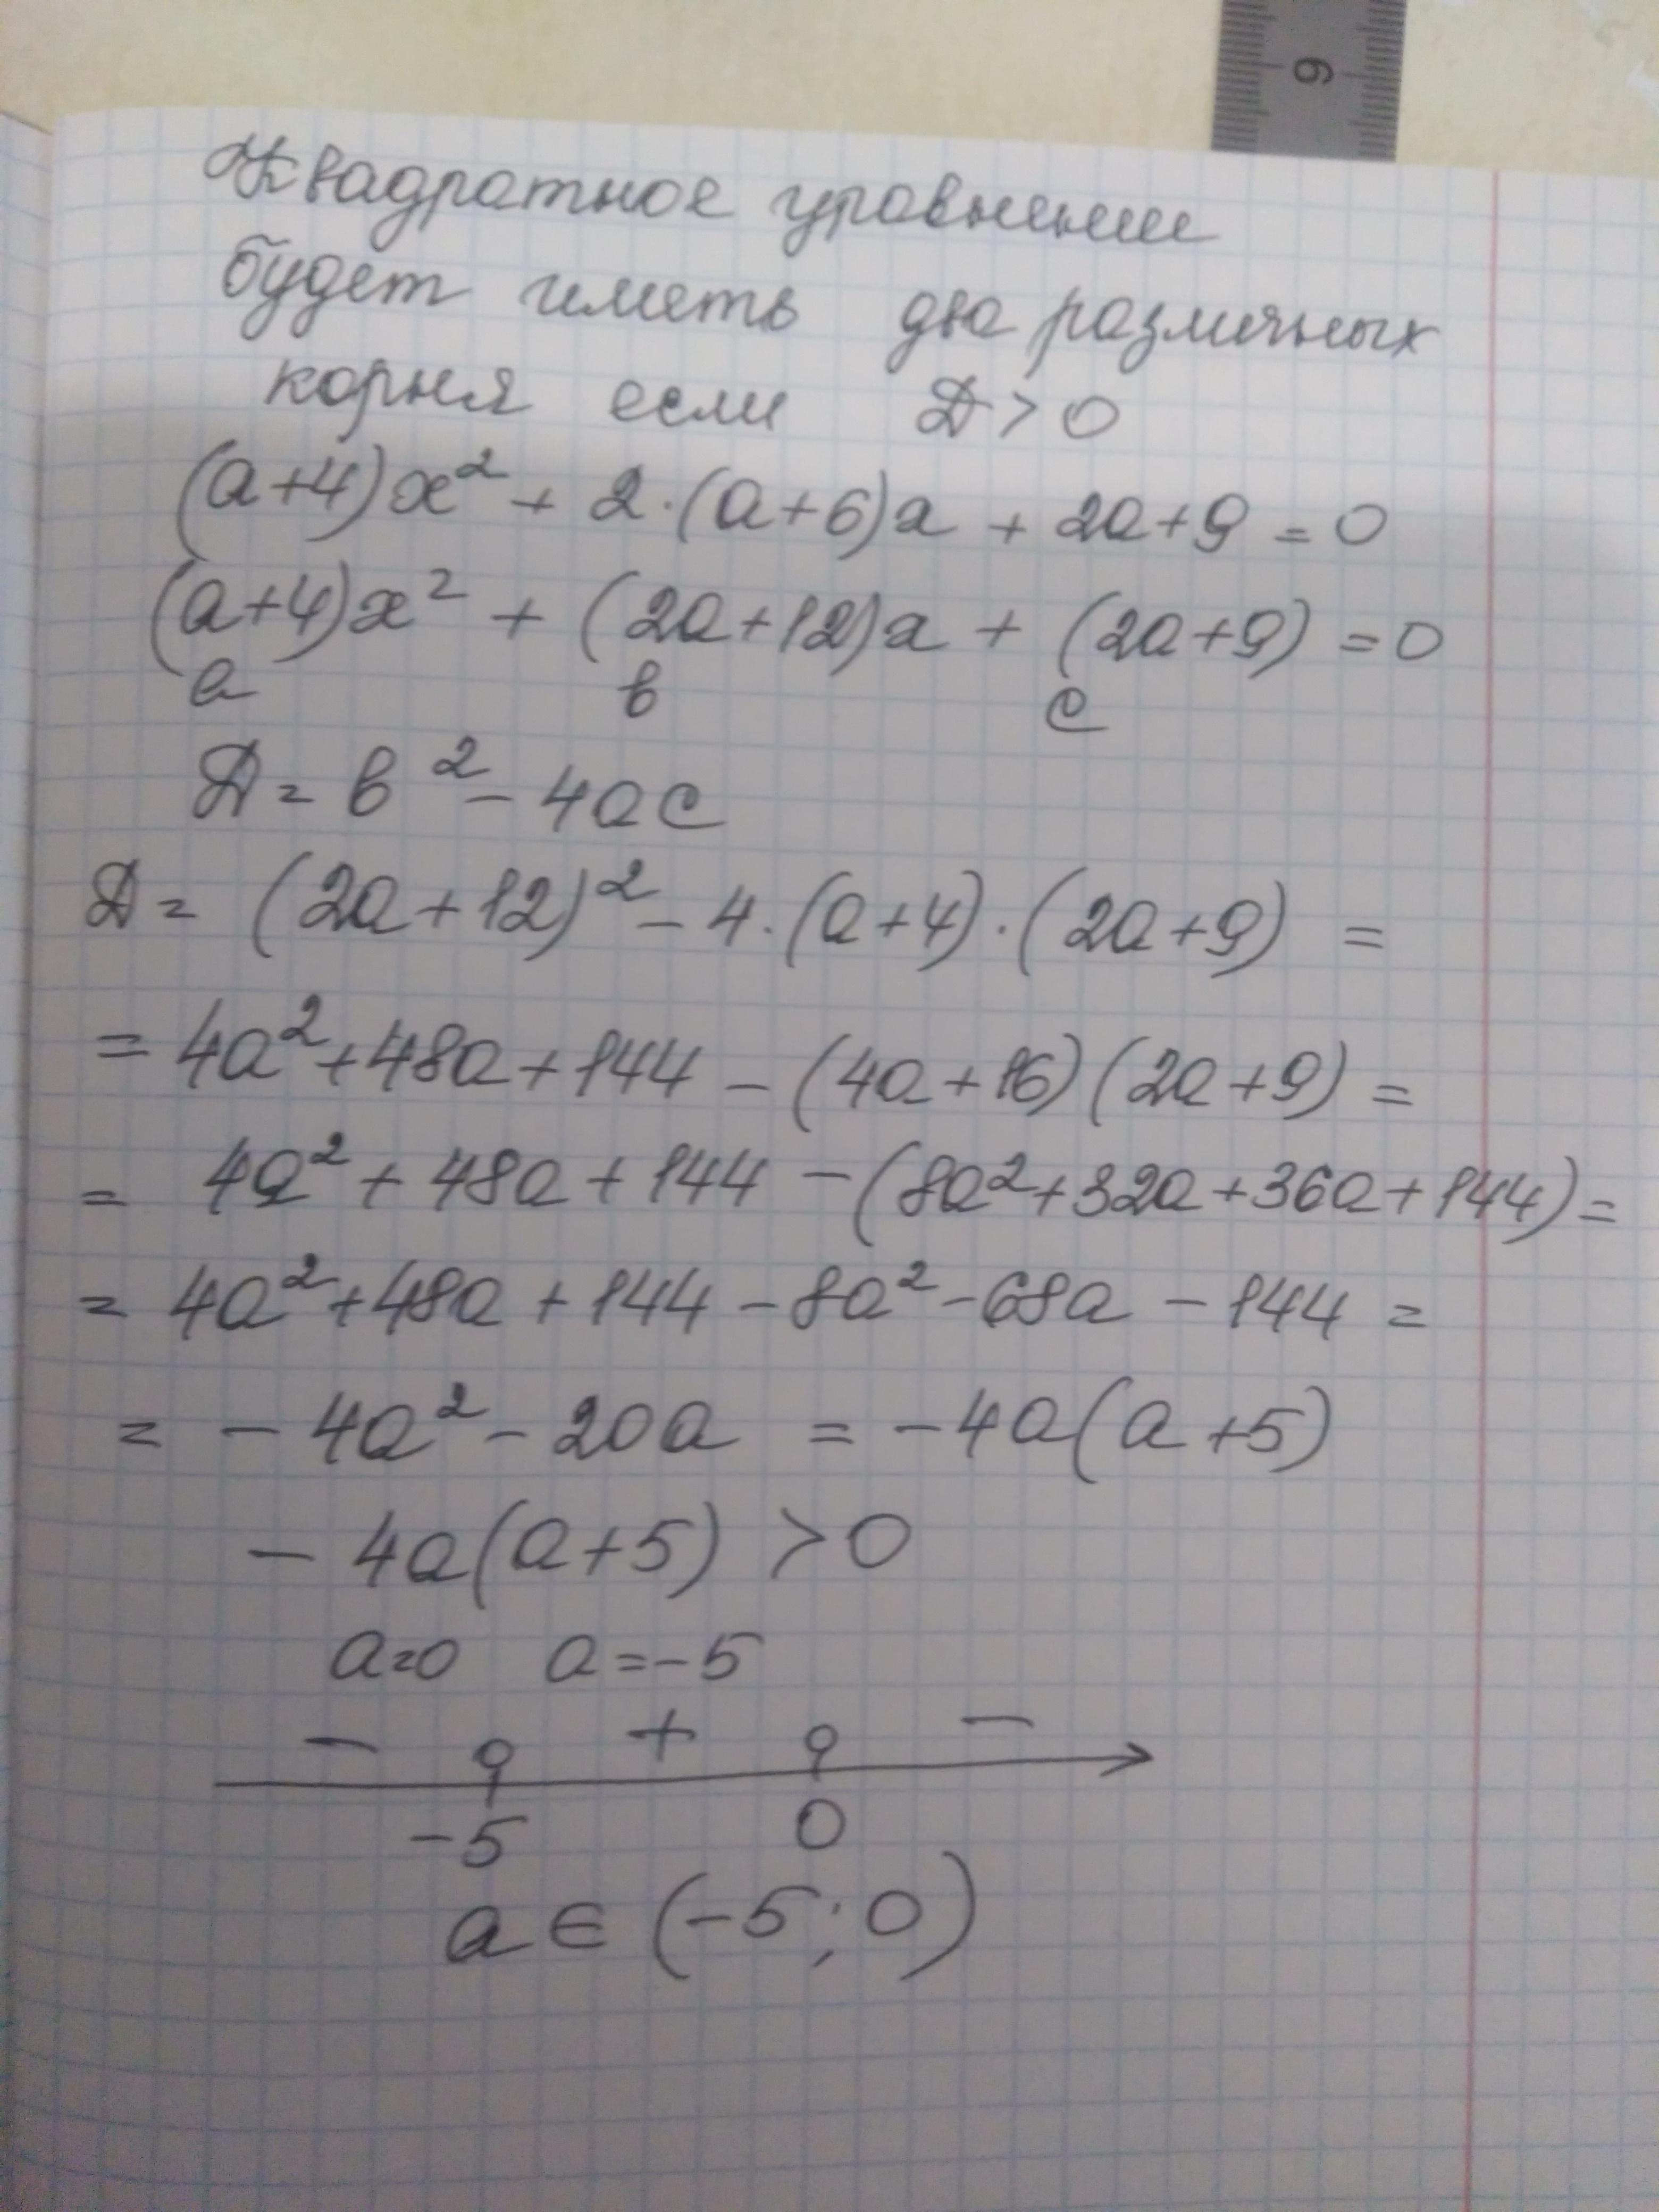 9
Квадратное уравнение
будет иметь два различных
корня если Д > 0
(a+4)x² + 2·(a+6)x + 2a+9 = 0
(a+4)x² + (2a+12)x + (2a+9) = 0
a в c
Д = в² - 4ac
Д = (2a+12)² - 4·(a+4)·(2a+9) =
= 4a²+48a+144 - (4a+16)(2a+9) =
= 4a² + 48a + 144 - (8a²+32a+36a+144) =
= 4a²+48a+144 - 8a² - 68a - 144 =
= - 4a² - 20a = -4a(a+5)
- 4a(a+5) > 0
a=0 a=-5
- + -
-5 0
a ∈ (-5; 0)